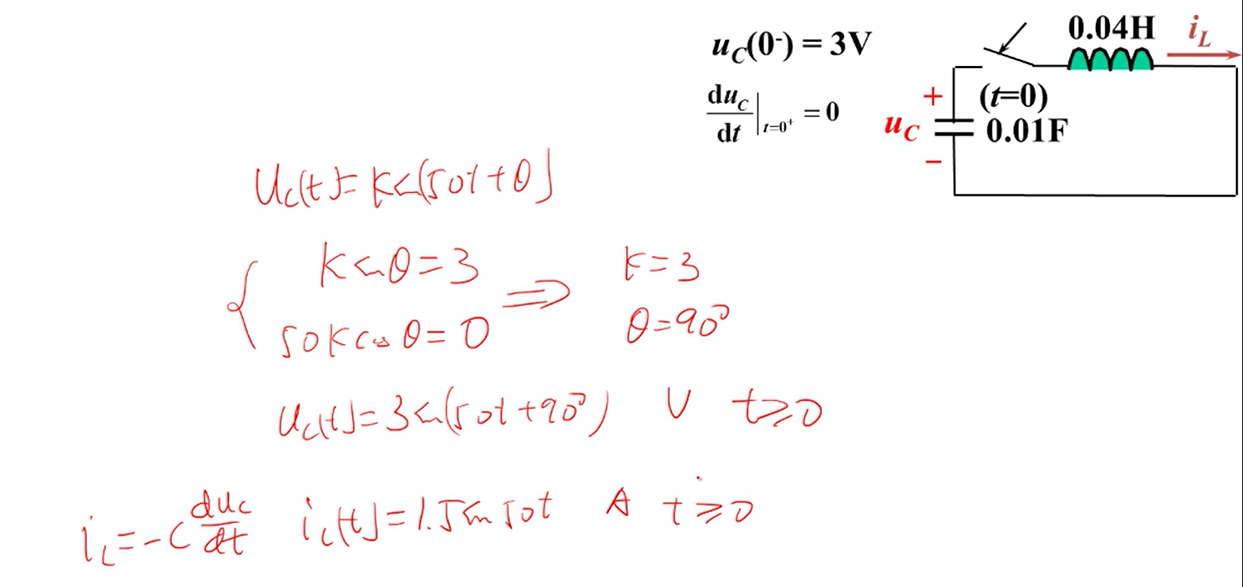 u_C(0⁻) = 3V
0.04H i_L
du_C/dt |_{t=0⁺} = 0
+ (t=0)
u_C 0.01F
−
u_C(t)=K sin(50t+θ)
{ K sin θ=3 ⇒ K=3
50K cos θ=0 θ=90°
u_C(t)=3 sin(50t+90°) V t≥0
i_L=-C du_C/dt i_L(t)=1.5 sin 50t A t≥0